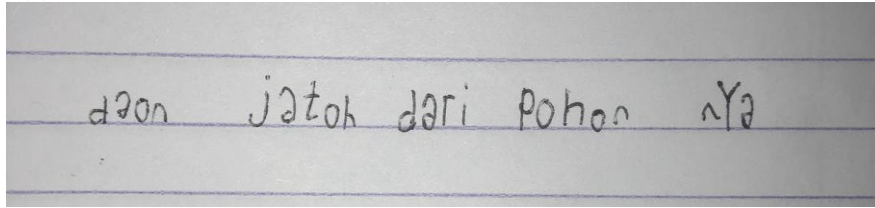 daon jatoh dari Pohon nYa